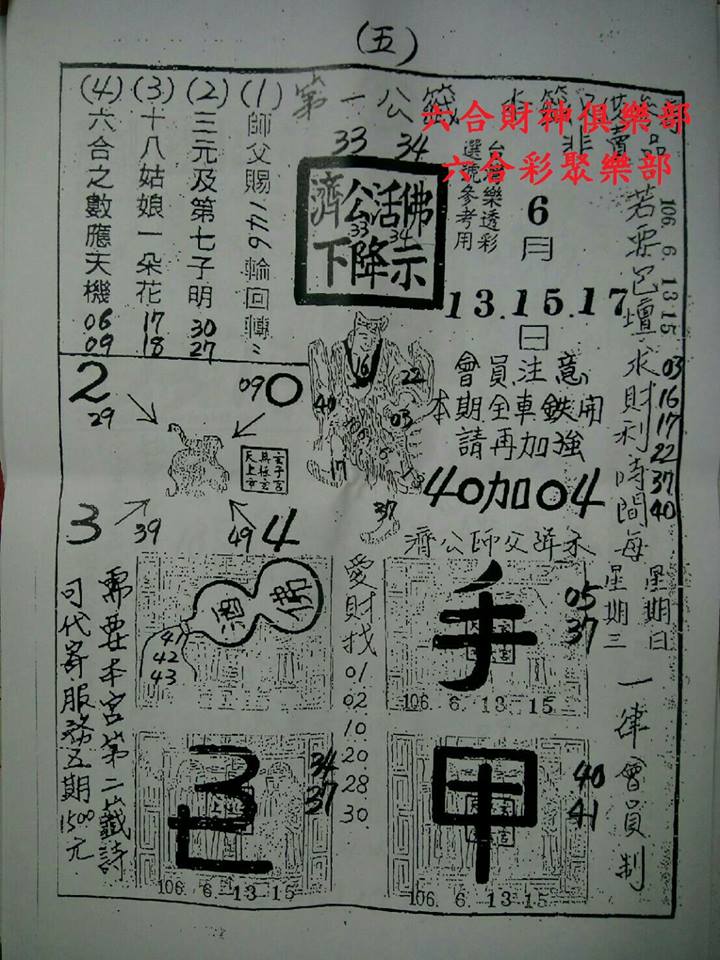 (五)
(1) 師父賜1469輪回轉
(2) 三元及第七子明 30 27
(3) 十八姑娘一朵花 17 18
(4) 六合之數應天機 06 09
第一公籤
33 34
六合財神俱樂部
六合彩聚樂部
濟公活佛
33 34
下降示
台灣樂透彩
選號參考用
6月
13.15.17
日
106 6 13 15
若要巴壇求財利時間每
星期三
星期日
一律會員制
03
16
17
22
37
40
會員注意
本期全車鉄開
請再加強
40加04
2
29
09
0
3
39
49
4
16
22
40
03
17
37
濟公師父降示
酒
佛
41
42
43
愛財找
01
02
10
20
28
30
手
05
37
106. 6. 13 15
34
37
106. 6. 13 15
甲
40
41
106. 6. 13 15
需要本宮第二籤詩
可代寄服務五期1500元